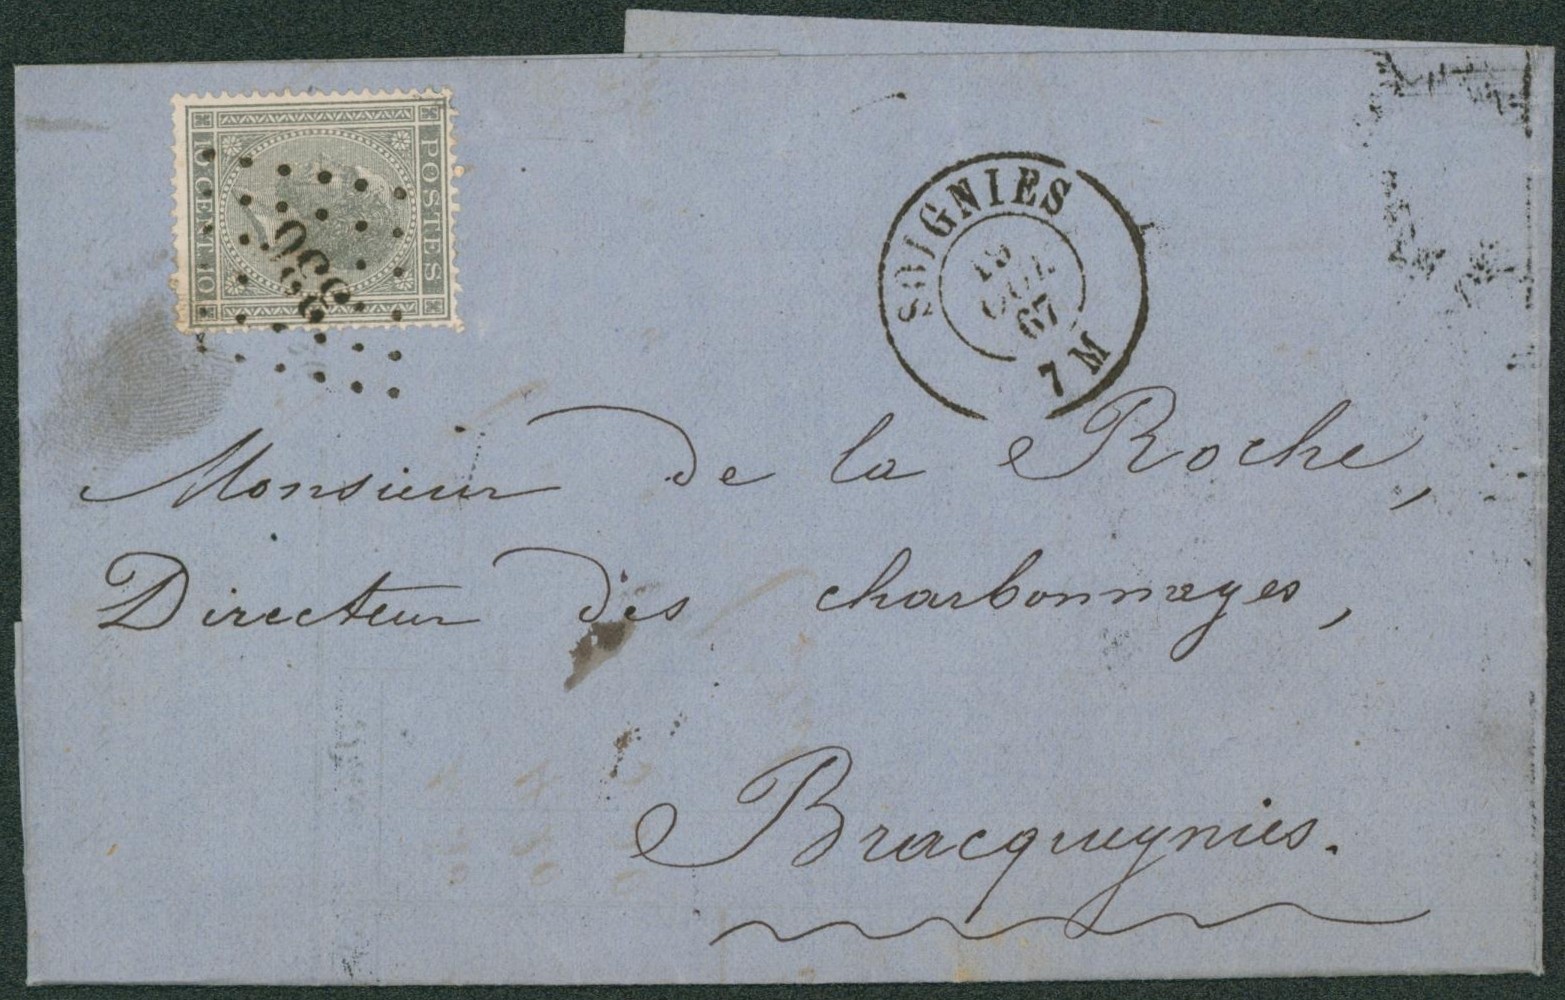 POSTES
10 CENT. 10
SOIGNIES
67
7 M
Monsieur de la Roche,
Directeur des charbonnages,
Bracquegnies.